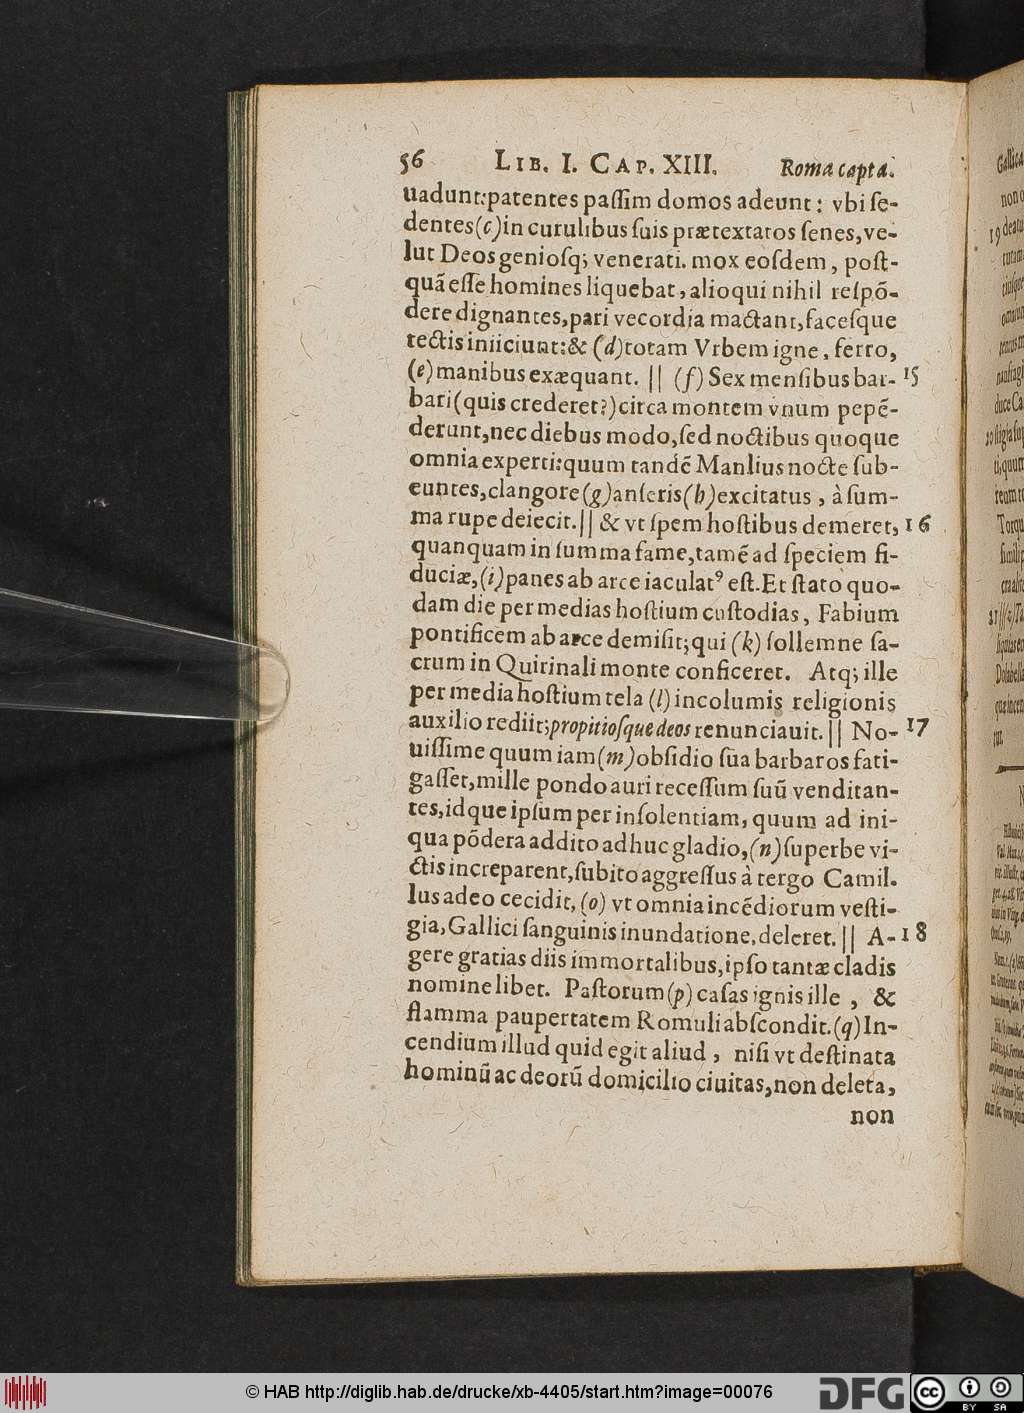 56 LIB. I. CAP. XIII. Roma capta.
uadunt:patentes paſſim domos adeunt: vbi ſe-
dentes(c)in curulibus ſuis prætextatos ſenes,ve-
lut Deos genioſq; venerati. mox eoſdem, poſt-
quã eſſe homines liquebat, alioqui nihil reſpõ-
dere dignantes,pari vecordia mactant,faceſque
tectis iniiciunt:& (d)totam Vrbem igne, ferro,
(e)manibus exæquant. || (f) Sex menſibus bar- 15
bari(quis crederet?)circa montem vnum pepẽ-
derunt,nec diebus modo,ſed noctibus quoque
omnia experti:quum tandẽ Manlius nocte ſub-
euntes,clangore(g)anſeris(h)excitatus, à ſum-
ma rupe deiecit.|| & vt ſpem hoſtibus demeret, 16
quanquam in ſumma fame,tamẽ ad ſpeciem fi-
duciæ,(i)panes ab arce iaculatꝰ eſt.Et ſtato quo-
dam die per medias hoſtium cuſtodias, Fabium
pontificem ab arce demiſit;qui (k) ſollemne ſa-
crum in Quirinali monte conficeret. Atq; ille
per media hoſtium tela (l)incolumis religionis
auxilio rediit;propitioſque deos renunciauit. || No- 17
uiſſime quum iam(m)obſidio ſua barbaros fati-
gaſſet,mille pondo auri receſſum ſuũ venditan-
tes,idque ipſum per inſolentiam, quum ad ini-
qua põdera addito adhuc gladio,(n)ſuperbe vi-
ctis increparent,ſubito aggreſſus à tergo Camil.
lus adeo cecidit, (o) vt omnia incẽdiorum veſti-
gia,Gallici ſanguinis inundatione,deleret. || A- 18
gere gratias diis immortalibus,ipſo tantæ cladis
nomine libet. Paſtorum(p) caſas ignis ille, &
flamma paupertatem Romuli abſcondit.(q)In-
cendium illud quid egit aliud, niſi vt deſtinata
hominũ ac deorũ domicilio ciuitas,non deleta,
non
© HAB http://diglib.hab.de/drucke/xb-4405/start.htm?image=00076
DFG
cc BY SA